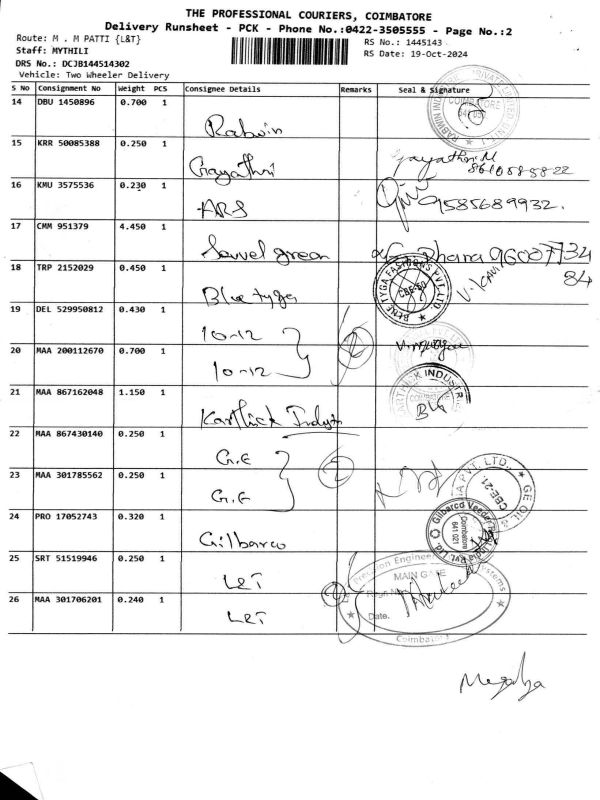 THE PROFESSIONAL COURIERS, COIMBATORE
Delivery Runsheet - PCK - Phone No.:0422-3505555 - Page No.:2
Route: M . M PATTI {L&T}
RS No.: 1445143
Staff: MYTHILI
RS Date: 19-Oct-2024
DRS No.: DCJB144514302
Vehicle: Two Wheeler Delivery
S No Consignment No Weight PCS Consignee Details Remarks Seal & Signature
14 DBU 1450896 0.700 1
COIMBATORE
Rabwin
15 KRR 50085388 0.250 1
Gayathri Gayathri M
8610885822
16 KMU 3575536 0.230 1
ARS 9585689932.
17 CMM 951379 4.450 1
green Dhana 96007734
84
18 TRP 2152029 0.450 1
BENE TYGA FASIONS PVT. LTD.
CBE-50
Blue tyga
19 DEL 529950812 0.430 1
10-12
20 MAA 200112670 0.700 1
10-12
21 MAA 867162048 1.150 1
KARTHICK INDUSTRIES
Karthick
22 MAA 867430140 0.250 1
G.E
23 MAA 301785562 0.250 1
G.E
PVT. LTD.
CBE-21
GE OIL &
24 PRO 17052743 0.320 1
Gilbarco
Gilbarco Veeder Root India Pvt. Ltd.
Coimbatore
641 021
25 SRT 51519946 0.250 1
L&T
Precision Engineering Systems
MAIN GATE
Date.
Coimbatore
26 MAA 301706201 0.240 1
L&T